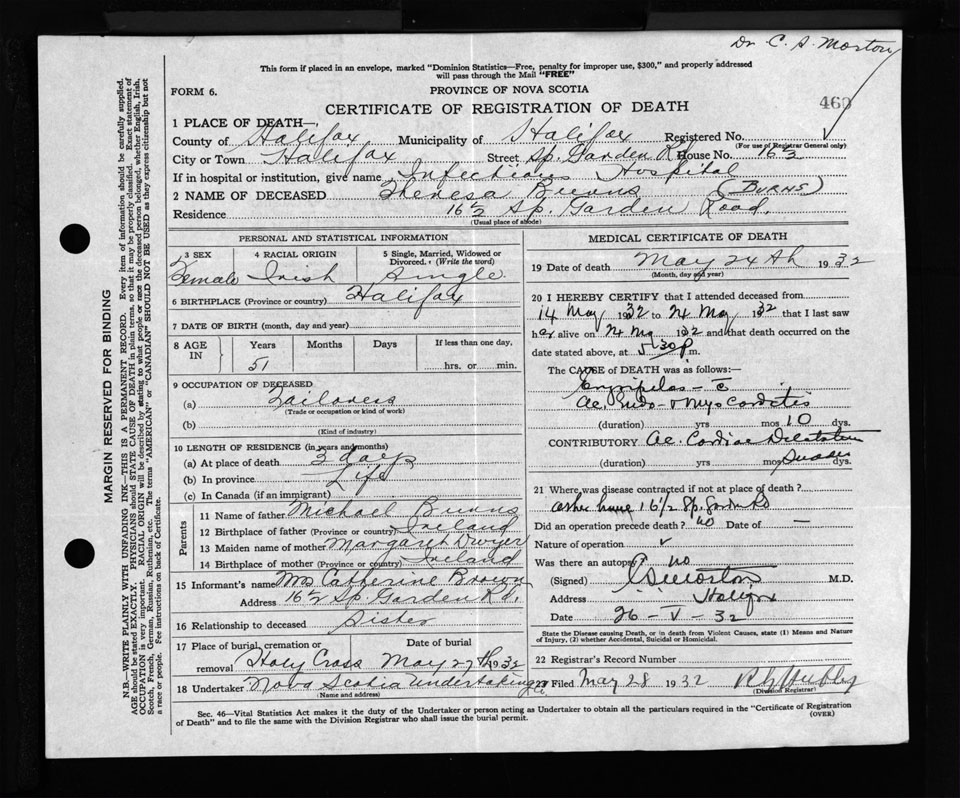 Dr. C. S. Morton
This form if placed in an envelope, marked "Dominion Statistics—Free, penalty for improper use, $300," and properly addressed
will pass through the Mail "FREE"
FORM 6.
PROVINCE OF NOVA SCOTIA
CERTIFICATE OF REGISTRATION OF DEATH
460
1 PLACE OF DEATH—
County of Halifax Municipality of Halifax Registered No.
(For use of Registrar General only)
City or Town Halifax Street Sp. Garden Rd House No. 16½
If in hospital or institution, give name Infectious Hospital
2 NAME OF DECEASED Theresa Burns (BURNS)
Residence 16½ Sp. Garden Road.
(Usual place of abode)
PERSONAL AND STATISTICAL INFORMATION
3 SEX Female
4 RACIAL ORIGIN Irish
5 Single, Married, Widowed or Divorced. (Write the word) Single
6 BIRTHPLACE (Province or country) Halifax
7 DATE OF BIRTH (month, day and year)
8 AGE IN Years Months Days If less than one day,
51 hrs. or min.
9 OCCUPATION OF DECEASED
(a) Tailoress
(Trade or occupation or kind of work)
(b)
(Kind of industry)
10 LENGTH OF RESIDENCE (in years and months)
(a) At place of death 3 days
(b) In province Life
(c) In Canada (if an immigrant)
Parents
11 Name of father Michael Burns
12 Birthplace of father (Province or country) Ireland
13 Maiden name of mother Margaret Dwyer
14 Birthplace of mother (Province or country) Ireland
15 Informant's name Mrs Catherine Brown
Address 16½ Sp. Garden Rd.
16 Relationship to deceased Sister
17 Place of burial, cremation or removal Date of burial
Holy Cross May 27th 1932
18 Undertaker Nova Scotia Undertaking
(Name and address)
MEDICAL CERTIFICATE OF DEATH
19 Date of death May 24th 1932
(Month, day and year)
20 I HEREBY CERTIFY that I attended deceased from
14 May 1932 to 24 May 1932 that I last saw
her alive on 24 May 1932 and that death occurred on the
date stated above, at 5.30 p m.
The CAUSE of DEATH was as follows:—
Erysipelas — c̄
Ac. Endo- & Myocarditis
(duration) yrs mos 10 dys.
CONTRIBUTORY Ac. Cardiac Dilatation
(duration) yrs mos dys.
21 Where was disease contracted if not at place of death?
at her home 16½ Sp. Garden Rd
Did an operation precede death? no Date of —
Nature of operation
Was there an autopsy? no
(Signed) C S Morton M.D.
Address Halifax
Date 26 - V - 32
State the Disease causing Death, or in death from Violent Causes, state (1) Means and Nature
of Injury, (2) whether Accidental, Suicidal or Homicidal.
22 Registrar's Record Number
23 Filed May 28 1932
(Division Registrar)
Sec. 46—Vital Statistics Act makes it the duty of the Undertaker or person acting as Undertaker to obtain all the particulars required in the "Certificate of Registration
of Death" and to file the same with the Division Registrar who shall issue the burial permit.
(OVER)
MARGIN RESERVED FOR BINDING
N.B.—WRITE PLAINLY WITH UNFADING INK—THIS IS A PERMANENT RECORD. Every item of information should be carefully supplied.
AGE should be stated EXACTLY. PHYSICIANS should STATE CAUSE OF DEATH in plain terms, so that it may be properly classified. Exact statement of
OCCUPATION is very important. RACIAL ORIGIN will be described by stating to what people or race the deceased person belonged, whether English, Irish,
Scotch, French, German, Russian, Ruthenian, etc. The terms "AMERICAN" or "CANADIAN" SHOULD NOT BE USED as they express citizenship but not
a race or people. Fee instructions on back of Certificate.